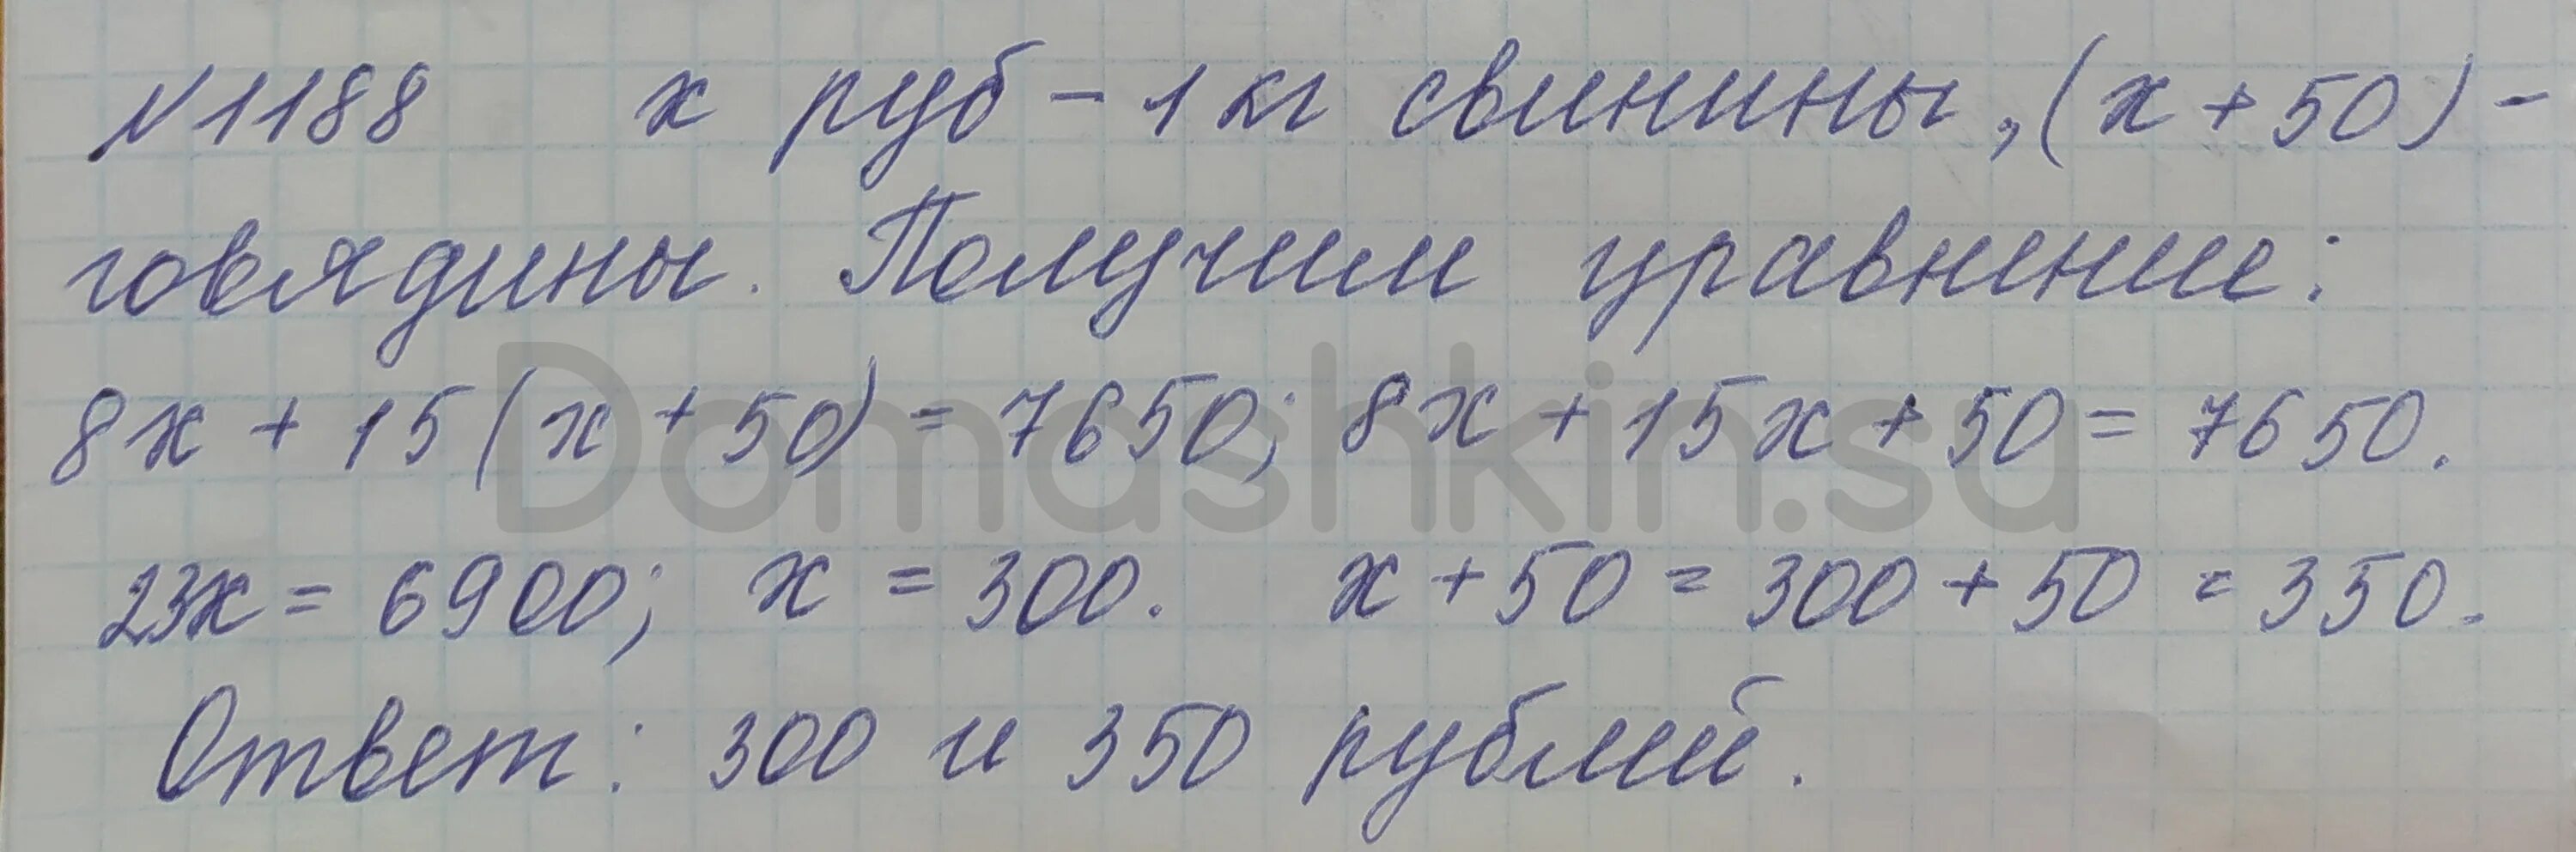 №1188 х руб - 1 кг свинины, (х + 50) -
говядины. Получим уравнение:
8х + 15(х + 50) = 7650; 8х + 15х + 50 = 7650.
23х = 6900; х = 300. х + 50 = 300 + 50 = 350.
Ответ: 300 и 350 рублей.
Domashkin.su